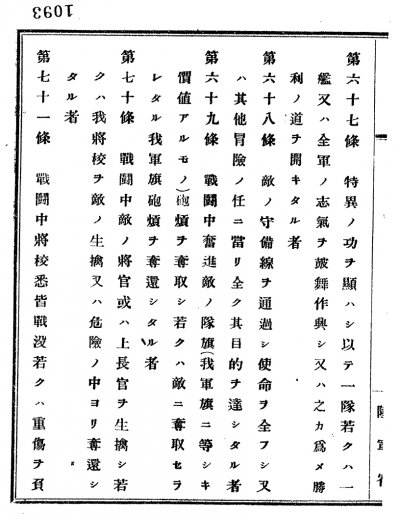 1093
第六十七條　特異ノ功ヲ顯ハシ以テ一隊若クハ一
艦又ハ全軍ノ志氣ヲ鼓舞作興シ又ハ之カ爲メ勝
利ノ道ヲ開キタル者
第六十八條　敵ノ守備線ヲ通過シ使命ヲ全フシ又
ハ其他冒險ノ任ニ當リ全ク其目的ヲ達シタル者
第六十九條　戰鬪中奮進敵ノ隊旗(我軍旗ニ等シキ
價値アルモノ)砲熕ヲ奪取シ若クハ敵ニ奪取セラ
レタル我軍旗砲熕ヲ奪還シタル者
第七十條　戰鬪中敵ノ將官或ハ上長官ヲ生擒シ若
クハ我將校ヲ敵ノ生擒又ハ危險ノ中ヨリ奪還シ
タル者
第七十一條　戰鬪中將校悉皆戰沒若クハ重傷ヲ負
陸軍省